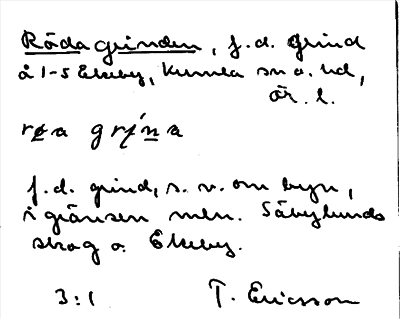 Rödagrinden, f.d. grind
å 1-5 Ekeby, Kumla sn o. hd,
Ör. l.
røa grı́na
f.d. grind, s. v. om byn,
i gränsen mln. Säbylunds
skog o. Ekeby.
3:1 T. Ericsson